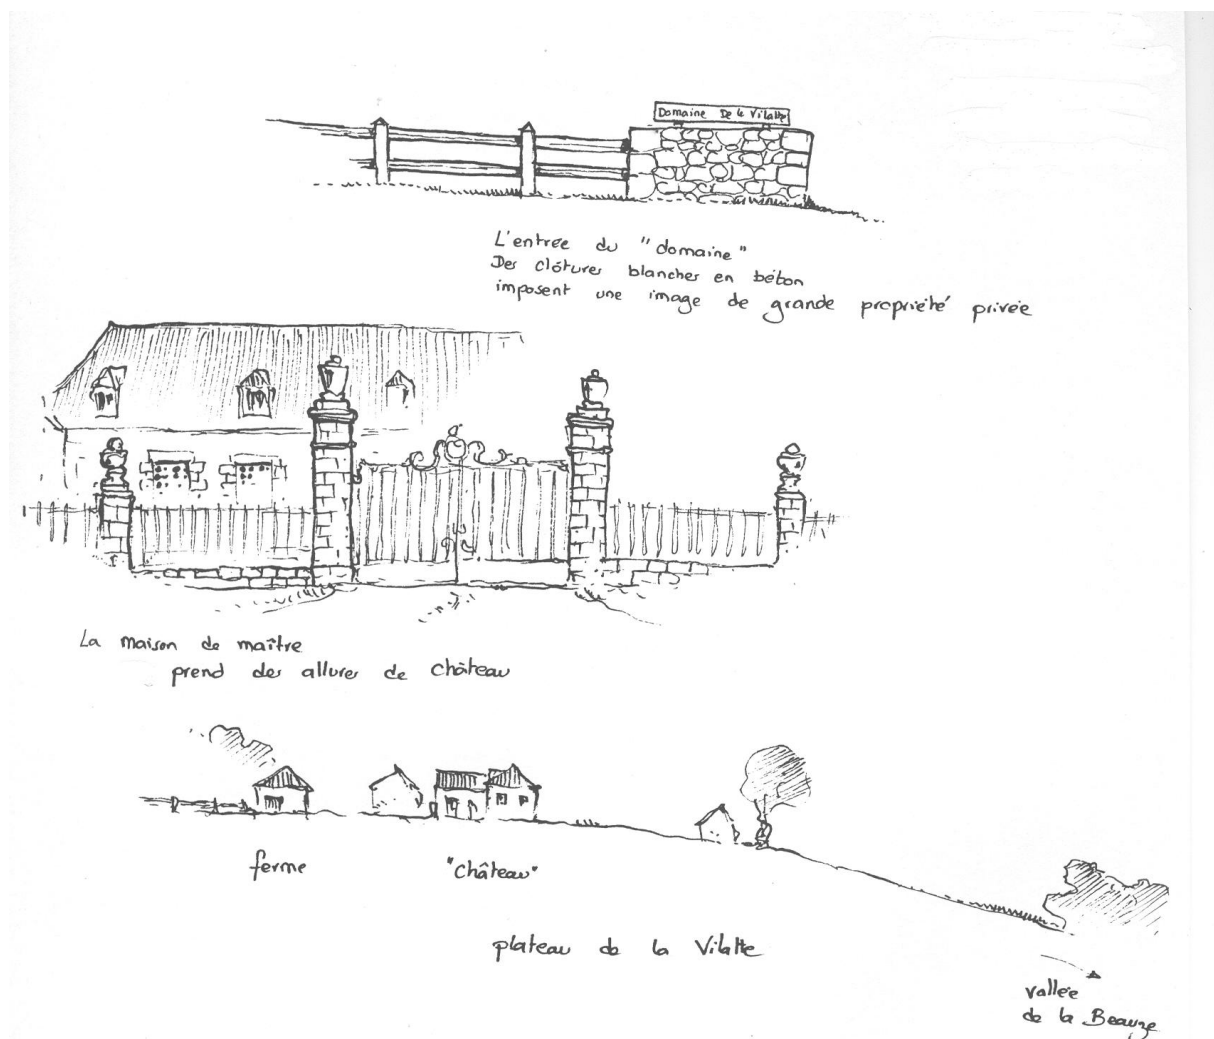 Domaine De la Vilatte
L'entrée du "domaine"
Des clôtures blanches en béton
imposent une image de grande propriété privée
La maison de maître
prend des allures de château
ferme
"château"
plateau de la Vilatte
vallée
de la Beauze